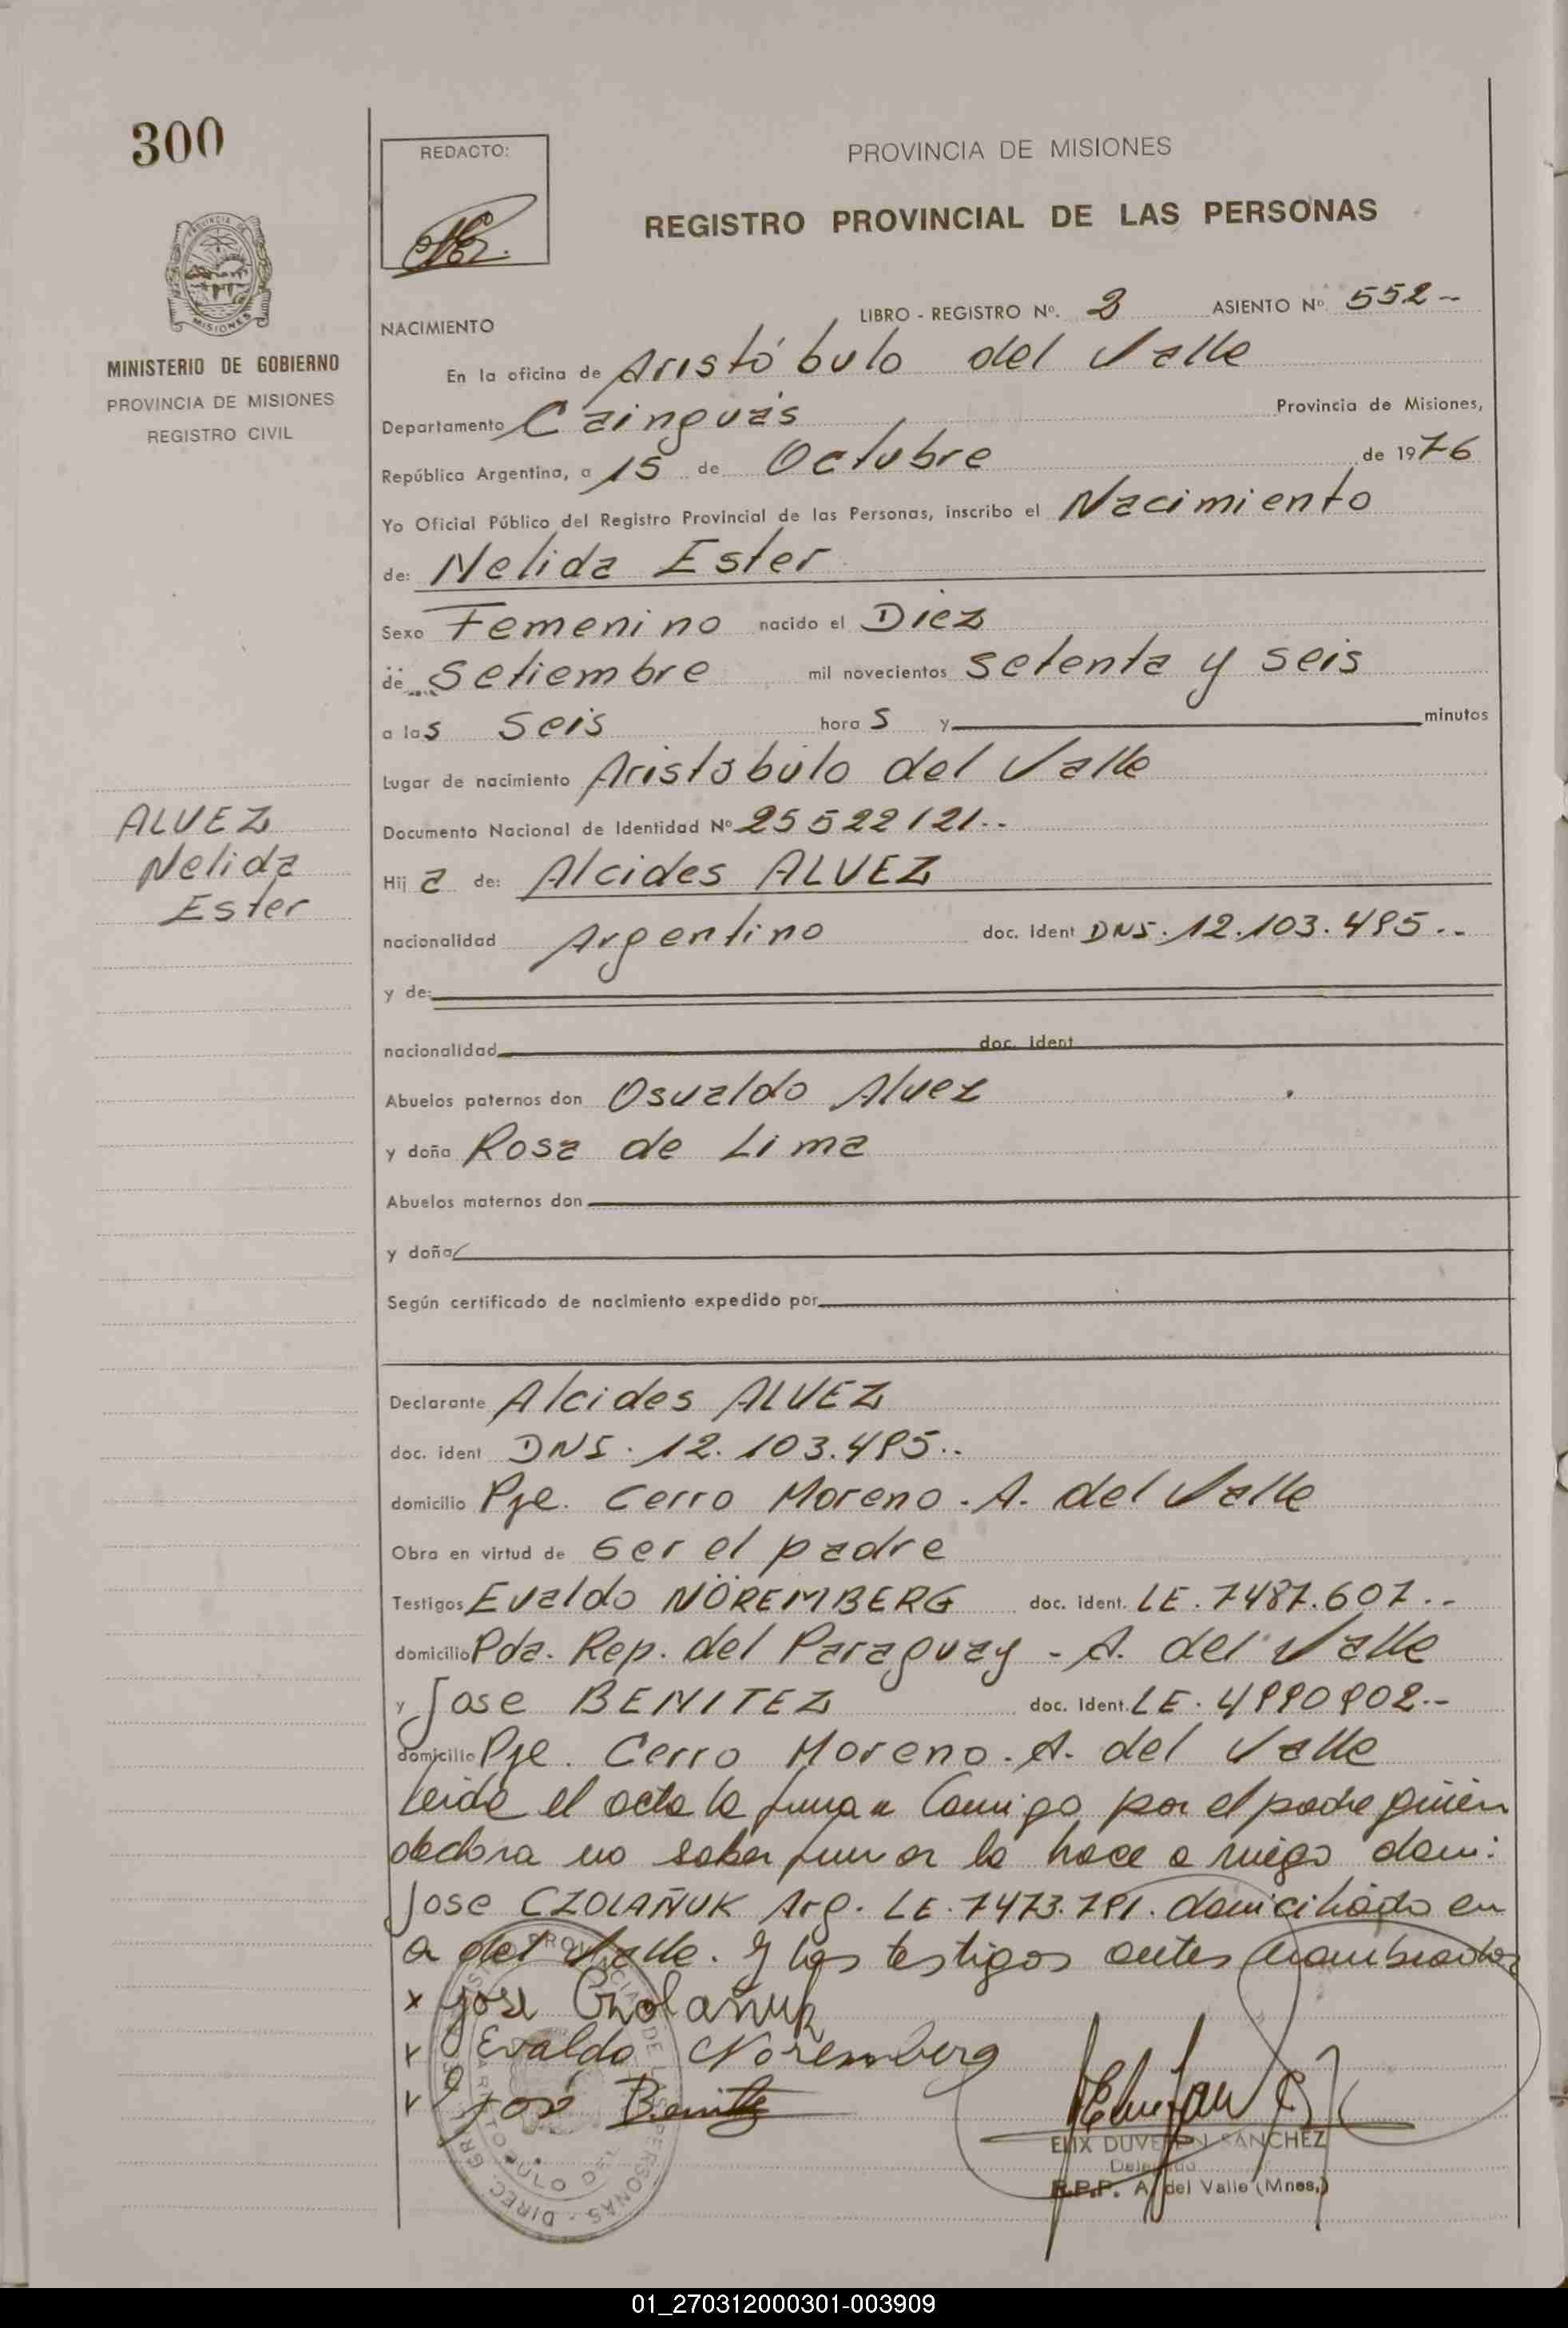 300
REDACTO:
PROVINCIA DE MISIONES
REGISTRO PROVINCIAL DE LAS PERSONAS
PROVINCIA DE MISIONES
MINISTERIO DE GOBIERNO
PROVINCIA DE MISIONES
REGISTRO CIVIL
NACIMIENTO LIBRO - REGISTRO Nº. 3 ASIENTO Nº 552-
En la oficina de Aristóbulo del Valle
Departamento Cainguás Provincia de Misiones,
República Argentina, a 15 de Octubre de 1976
Yo Oficial Público del Registro Provincial de las Personas, inscribo el Nacimiento
de: Nelida Ester
Sexo Femenino nacido el Diez
de Setiembre mil novecientos setenta y seis
a las seis horas y minutos
Lugar de nacimiento Aristóbulo del Valle
ALVEZ
Nelida
Ester
Documento Nacional de Identidad Nº 25522121..
Hija de: Alcides ALVEZ
nacionalidad Argentino doc. ident DNI. 12.103.495..
y de:
nacionalidad doc. ident
Abuelos paternos don Osvaldo Alvez
y doña Rosa de Lima
Abuelos maternos don
y doña
Según certificado de nacimiento expedido por
Declarante Alcides ALVEZ
doc. ident DNI. 12.103.495..
domicilio Pje. Cerro Moreno. A. del Valle
Obra en virtud de ser el padre
Testigos Evaldo NÖREMBERG doc. ident. LE. 7487.607..
domicilio Pda. Rep. del Paraguay - A. del Valle
y Jose BENITEZ doc. ident. LE. 4990902.-
domicilio Pje. Cerro Moreno. A. del Valle
Leida el acta la firman Conmigo por el padre quien
declara no saber firmar lo hace a ruego don:
Jose CZOLAÑUK Arg. LE. 7473.791. domiciliado en
A del Valle. Y los testigos antes nombrados
x Jose Czolañuk
x Evaldo Noremberg
x José Benitez
ELIX DUVE SANCHEZ
Delegado
R.P.P. A. del Valle (Mnes.)
01_270312000301-003909